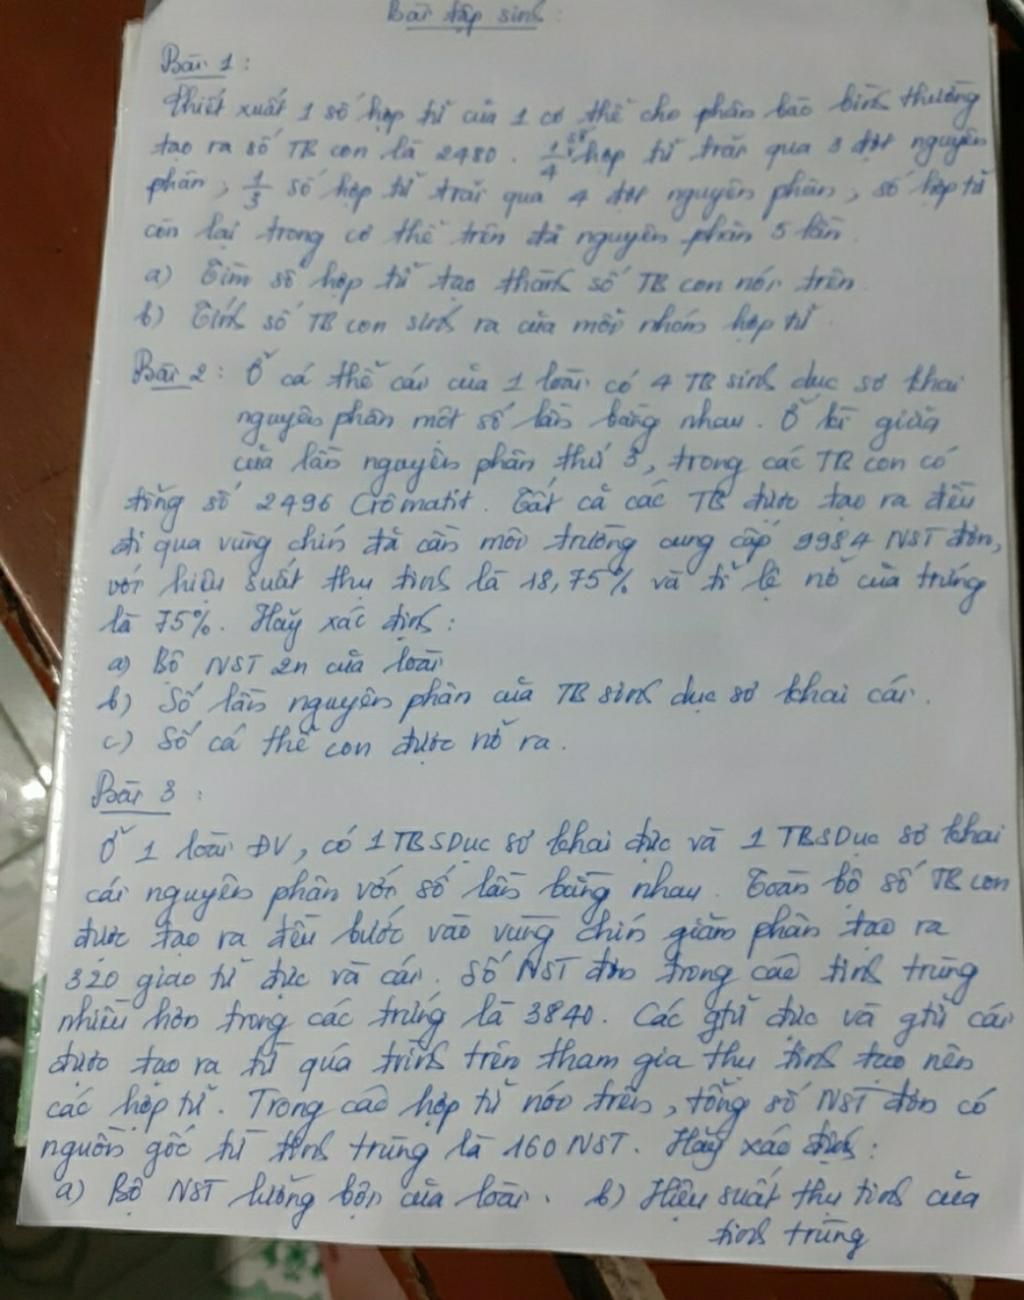 Bài tập sinh :
Bài 1 :
Chiết xuất 1 số hợp tử của 1 cơ thể cho phân bào bình thường
tạo ra số TB con là 2480. 1/4 số hợp tử trải qua 3 đợt nguyên
phân, 1/3 số hợp tử trải qua 4 đợt nguyên phân, số hợp tử
còn lại trong cơ thể trên đã nguyên phân 5 lần.
a) Tìm số hợp tử tạo thành số TB con nói trên.
b) Tính số TB con sinh ra của mỗi nhóm hợp tử.
Bài 2 : Ở cá thể cái của 1 loài có 4 TB sinh dục sơ khai
nguyên phân một số lần bằng nhau. Ở kì giữa
của lần nguyên phân thứ 3, trong các TB con có
tổng số 2496 Crômatit. Tất cả các TB được tạo ra đều
đi qua vùng chín đã cần môi trường cung cấp 9984 NST đơn,
với hiệu suất thụ tinh là 18,75% và tỉ lệ nở của trứng
là 75%. Hãy xác định :
a) Bộ NST 2n của loài
b) Số lần nguyên phân của TB sinh dục sơ khai cái.
c) Số cá thể con được nở ra.
Bài 3 :
Ở 1 loài ĐV, có 1 TBSDục sơ khai đực và 1 TBSDục sơ khai
cái nguyên phân với số lần bằng nhau. Toàn bộ số TB con
được tạo ra đều bước vào vùng chín giảm phân tạo ra
320 giao tử đực và cái. Số NST đơn trong các tinh trùng
nhiều hơn trong các trứng là 3840. Các gtử đực và gtử cái
được tạo ra từ quá trình trên tham gia thụ tinh tạo nên
các hợp tử. Trong các hợp tử nói trên, tổng số NST đơn có
nguồn gốc từ tinh trùng là 160 NST. Hãy xác định :
a) Bộ NST lưỡng bội của loài. b) Hiệu suất thụ tinh của
tinh trùng